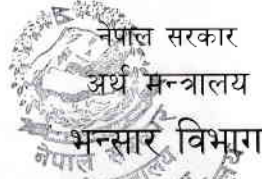 नेपाल सरकार
अर्थ मन्त्रालय
भन्सार विभाग
नेपाल